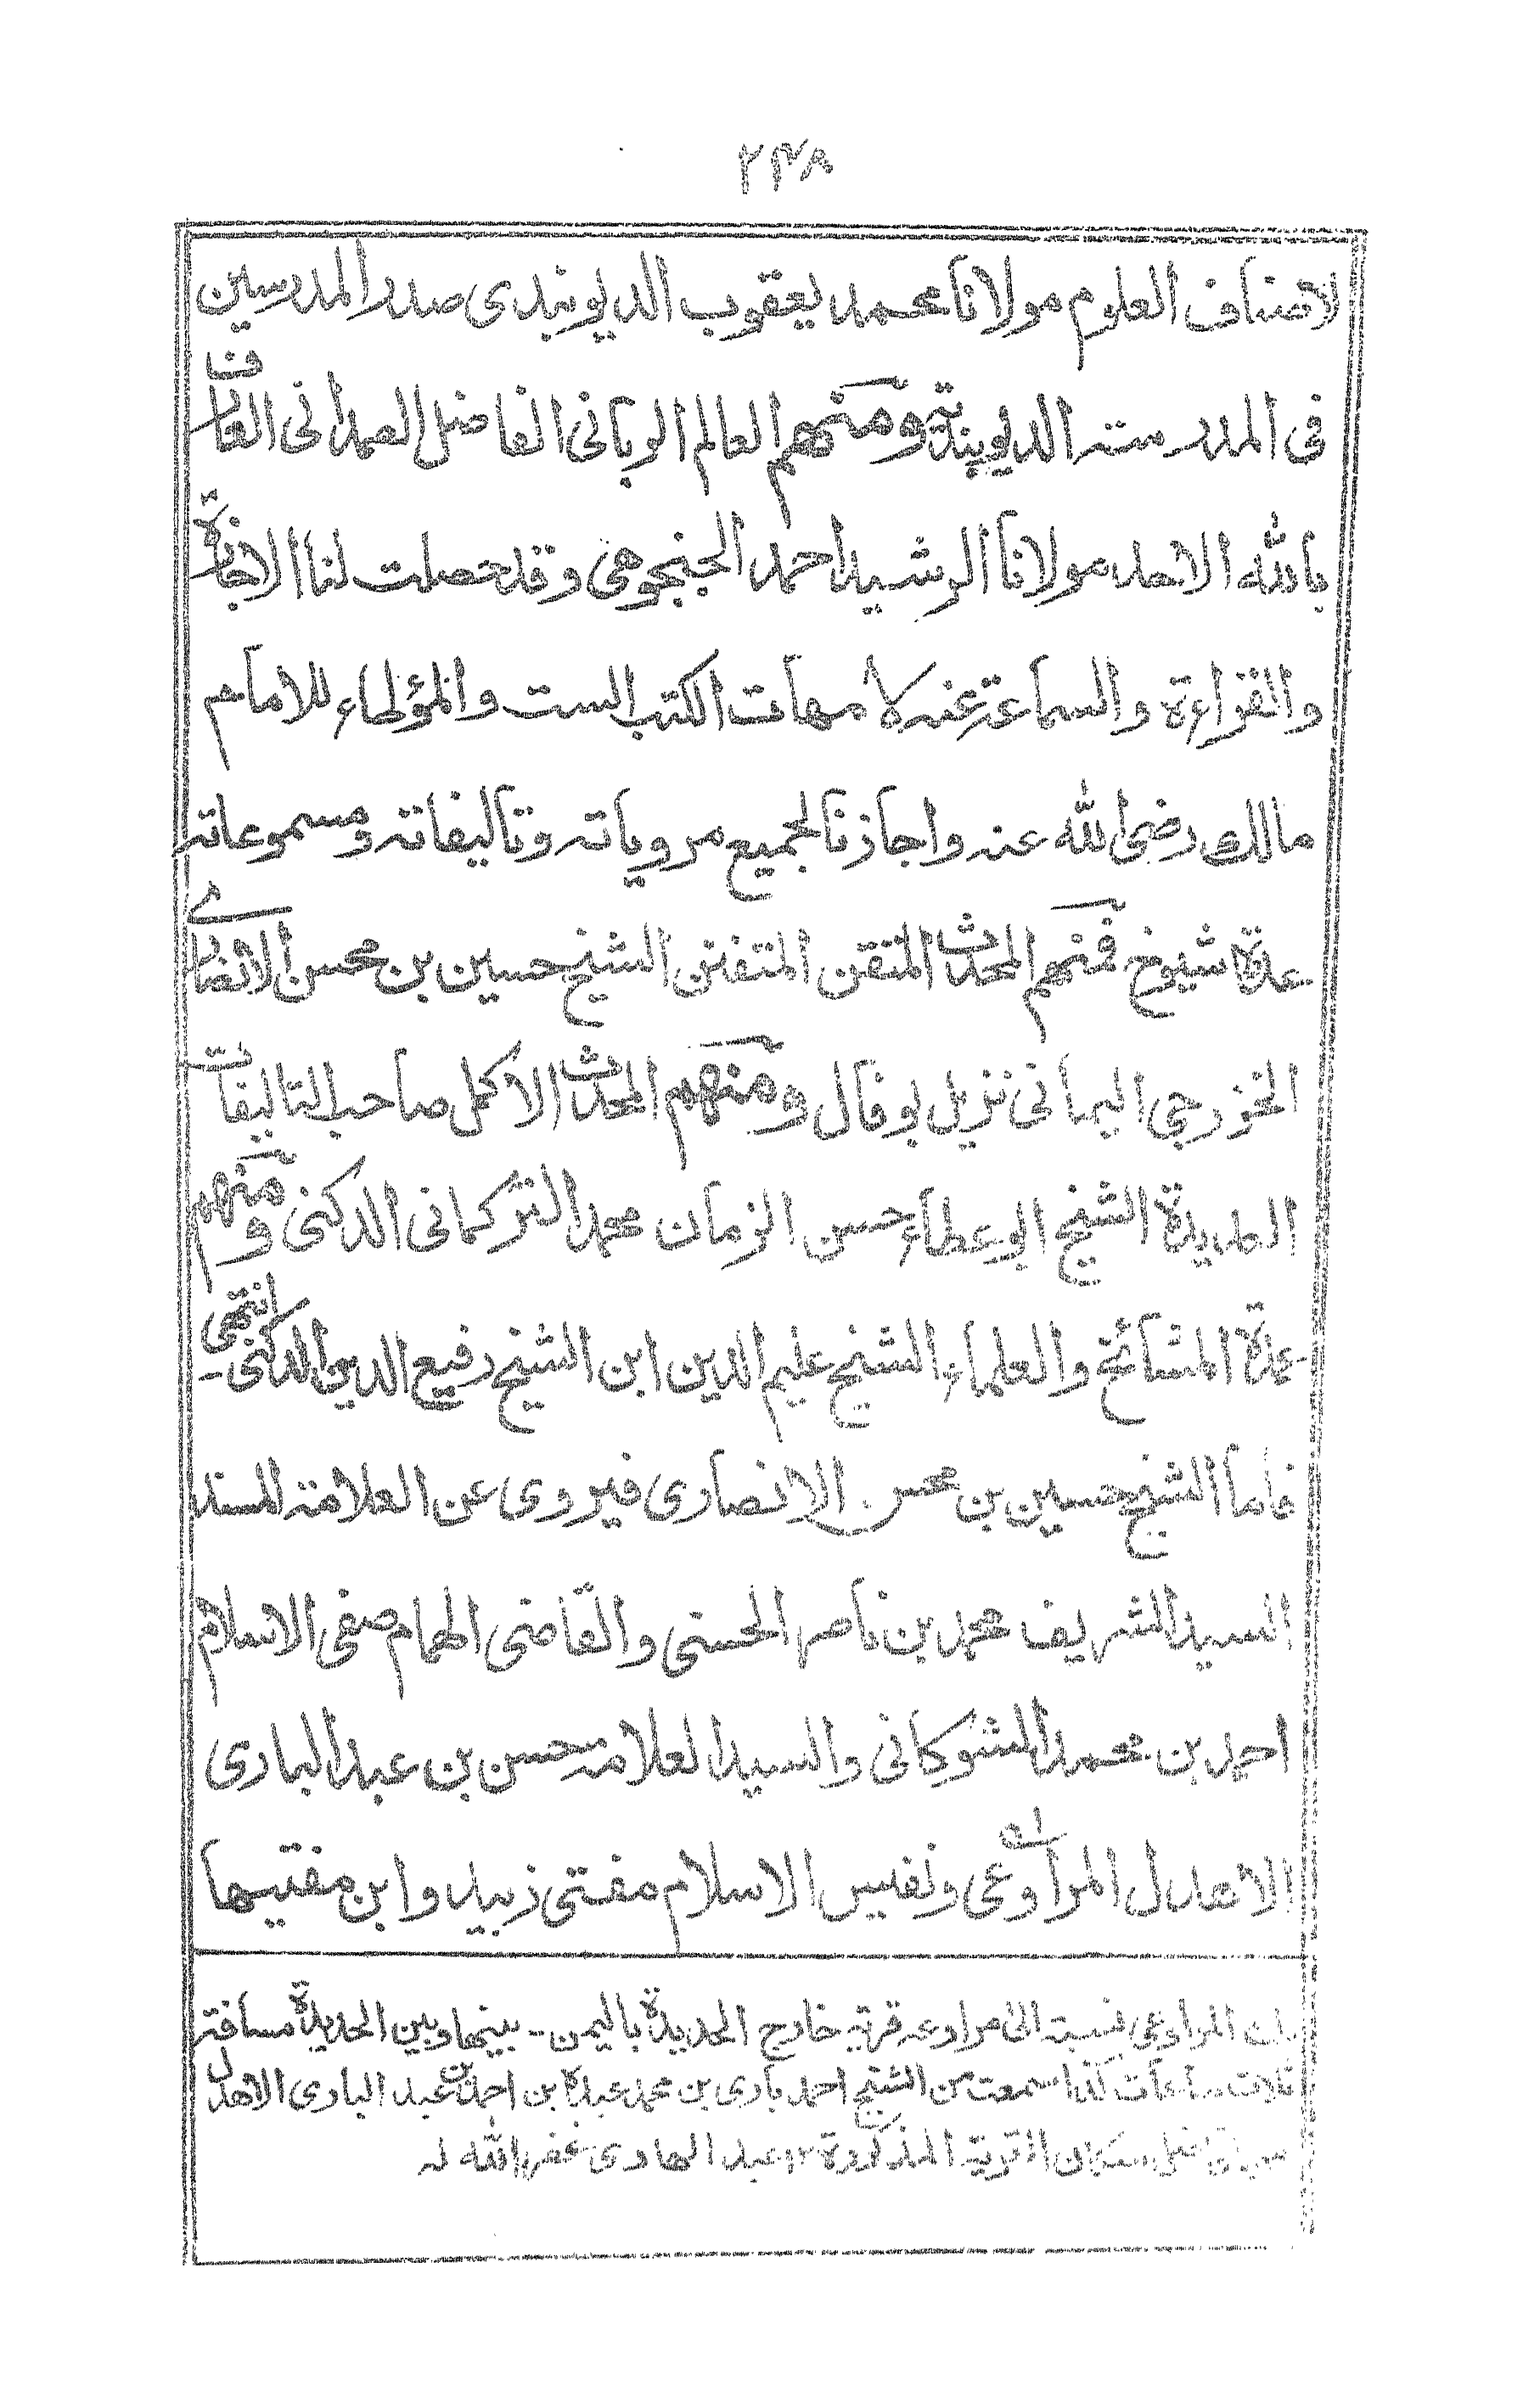 ۲۴۸
لاصناف العلوم مولانا محمد يعقوب الديوبندى صدر المدرسين
فى المدرسته الديوبندية ومنهم العالم الربانى الفاضل الصمدانى العارف
بالله الاحد مولانا الرشيد احمد الجنجوهى وقد حصلت لنا الاجازة
والقراءة والسماعة عنه لامهات الكتب الست والمؤطاء للامام
مالك رضى الله عنه واجازنا لجميع مروياته وتاليفاته ومسموعاته
عدة شيوخ فمنهم المحدث المتقن المتفنن الشيخ حسين بن محسن الانصارى
الخزرجى اليمانى نزيل بوفال ومنهم المحدث الاكمل صاحب التاليفات
العديدة الشيخ ابو عطاء حسن الزمان محمد التركمانى الدكنى ومنهم
عمدة المشائخ والعلماء الشيخ عليم الدين ابن الشيخ رفيع الدين الدكنى انتهى-
فاما الشيخ حسين بن محسن الانصارى فيروى عن العلامة المسند
السيد الشريف محمد بن ناصر الحسنى والقاضى الهمام صفى الاسلام
احمد بن محمد الشوكانى والسيد العلامة حسن بن عبد البارى
الاهدل المراوعى ونفيس الاسلام مفتى زبيد وابن مفتيها
المراوعى نسبة الى مراوعه قرية خارج الحديدة باليمن- بينها وبين الحديدة مسافة
ثلاث ساعات كذا سمعت من الشيخ احمد بارى بن محمد عبدة ابن احمد بن عبد البارى الاهدل
سكان القرية المذكورة ١٢ عبد الهادى غفر الله له